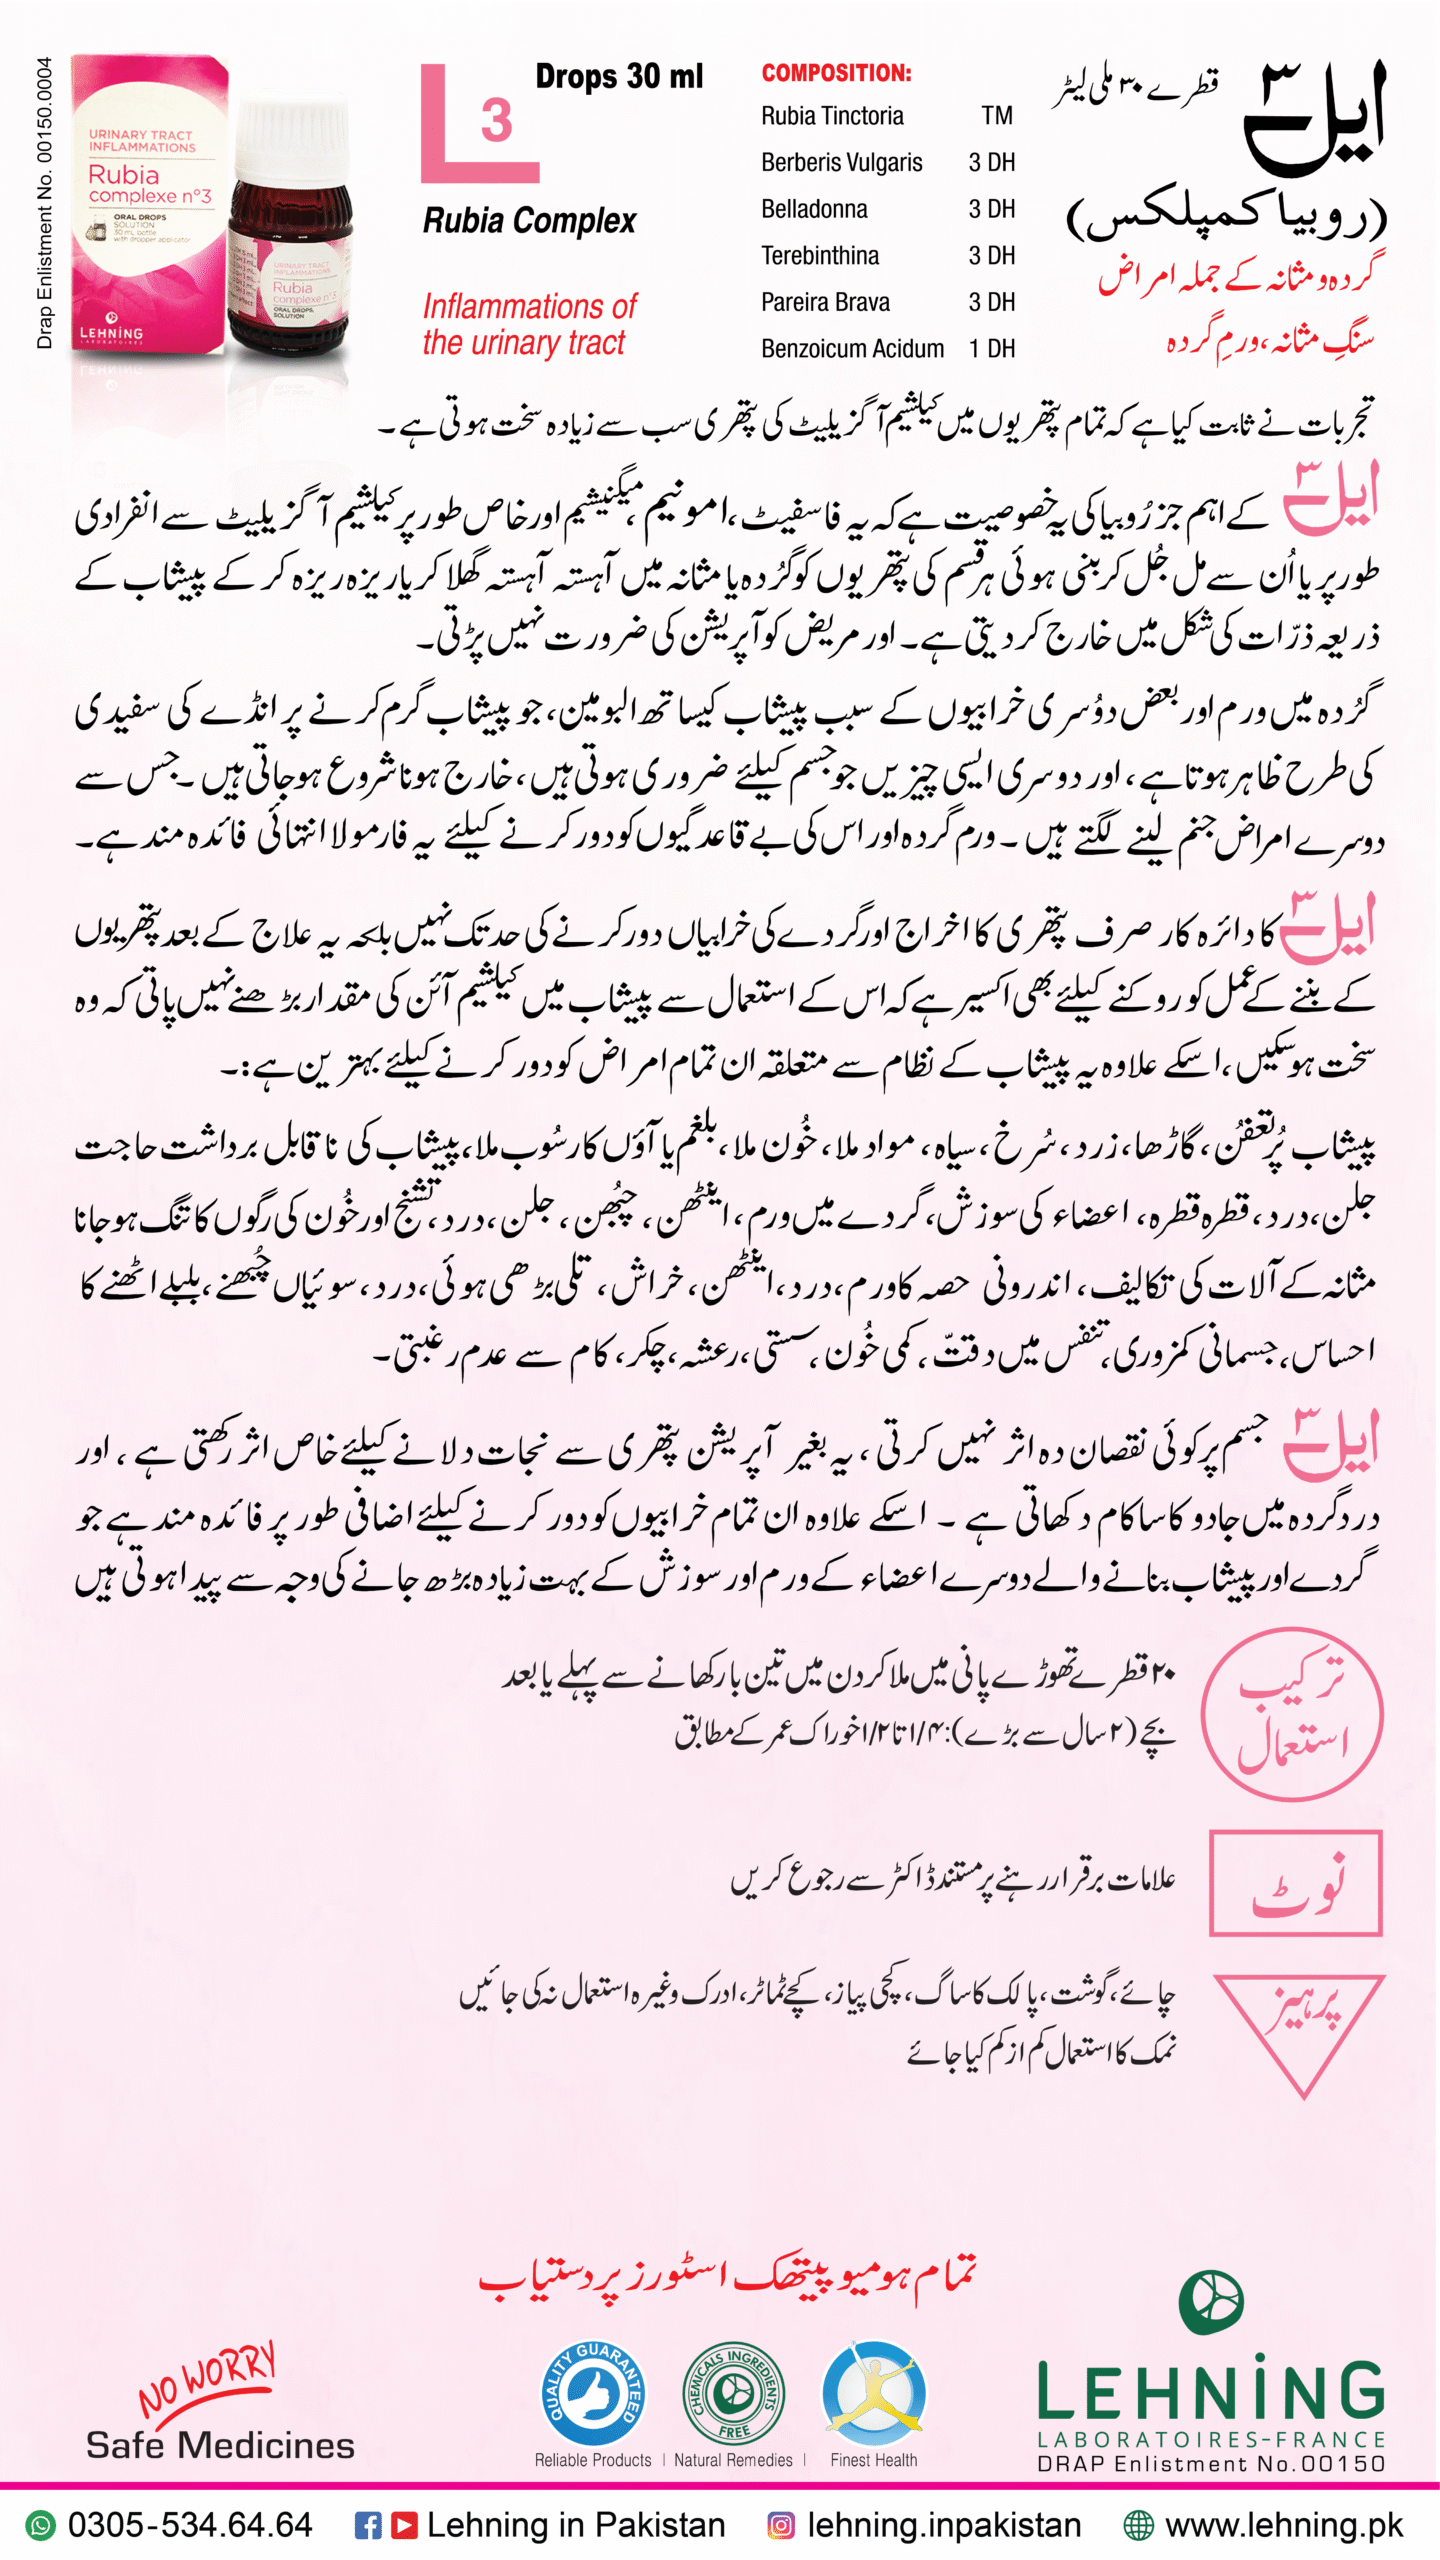 Drap Enlistment No. 00150.0004
URINARY TRACT
INFLAMMATIONS
Rubia
complexe n°3
ORAL DROPS
SOLUTION
30 mL bottle
with dropper applicator
LEHNiNG
LABORATOIRES
URINARY TRACT
INFLAMMATIONS
Rubia
complexe n°3
ORAL DROPS,
SOLUTION
L 3
Drops 30 ml
Rubia Complex
Inflammations of
the urinary tract
COMPOSITION:
Rubia Tinctoria TM
Berberis Vulgaris 3 DH
Belladonna 3 DH
Terebinthina 3 DH
Pareira Brava 3 DH
Benzoicum Acidum 1 DH
ایل ۳ قطرے ۳۰ ملی لیٹر
(روبیا کمپلکس)
گردہ و مثانہ کے جملہ امراض
سنگِ مثانہ، ورمِ گردہ
تجربات نے ثابت کیا ہے کہ تمام پتھریوں میں کیلشیم آگزیلیٹ کی پتھری سب سے زیادہ سخت ہوتی ہے۔
ایل ۳ کے اہم جز رُوبیا کی یہ خصوصیت ہے کہ یہ فاسفیٹ، امونیم، میگنیشیم اور خاص طور پر کیلشیم آگزیلیٹ سے انفرادی
طور پر یا اُن سے مل جُل کر بنی ہوئی ہر قسم کی پتھریوں کو گُردہ یا مثانہ میں آہستہ آہستہ گھلا کر یا ریزہ ریزہ کر کے پیشاب کے
ذریعہ ذرّات کی شکل میں خارج کر دیتی ہے۔ اور مریض کو آپریشن کی ضرورت نہیں پڑتی۔
گُردہ میں ورم اور بعض دوُسری خرابیوں کے سبب پیشاب کیساتھ البومین، جو پیشاب گرم کرنے پر انڈے کی سفیدی
کی طرح ظاہر ہوتا ہے، اور دوسری ایسی چیزیں جو جسم کیلئے ضروری ہوتی ہیں، خارج ہونا شروع ہو جاتی ہیں۔ جس سے
دوسرے امراض جنم لینے لگتے ہیں۔ ورم گردہ اور اس کی بے قاعدگیوں کو دور کرنے کیلئے یہ فارمولا انتہائی فائدہ مند ہے۔
ایل ۳ کا دائرہ کار صرف پتھری کا اخراج اور گردے کی خرابیاں دور کرنے کی حد تک نہیں بلکہ یہ علاج کے بعد پتھریوں
کے بننے کے عمل کو روکنے کیلئے بھی اکسیر ہے کہ اس کے استعمال سے پیشاب میں کیلشیم آئن کی مقدار بڑھنے نہیں پاتی کہ وہ
سخت ہو سکیں، اسکے علاوہ یہ پیشاب کے نظام سے متعلقہ ان تمام امراض کو دور کرنے کیلئے بہترین ہے:۔
پیشاب پُر تعفُن، گاڑھا، زرد، سُرخ، سیاہ، مواد ملا، خُون ملا، بلغم یا آؤں کا رسُوب ملا، پیشاب کی ناقابل برداشت حاجت
جلن، درد، قطرہ قطرہ، اعضاء کی سوزش، گردے میں ورم، اینٹھن، چُبھن، جلن، درد، تشنج اور خُون کی رگوں کا تنگ ہو جانا
مثانہ کے آلات کی تکالیف، اندرونی حصہ کا ورم، درد، اینٹھن، خراش، تلی بڑھی ہوئی، درد، سوئیاں چُبھنے، بلبلے اٹھنے کا
احساس، جسمانی کمزوری، تنفس میں دقت، کمی خُون، سستی، رعشہ، چکر، کام سے عدم رغبتی۔
ایل ۳ جسم پر کوئی نقصان دہ اثر نہیں کرتی، یہ بغیر آپریشن پتھری سے نجات دلانے کیلئے خاص اثر رکھتی ہے، اور
درد گردہ میں جادو کا سا کام دکھاتی ہے۔ اسکے علاوہ ان تمام خرابیوں کو دور کرنے کیلئے اضافی طور پر فائدہ مند ہے جو
گردے اور پیشاب بنانے والے دوسرے اعضاء کے ورم اور سوزش کے بہت زیادہ بڑھ جانے کی وجہ سے پیدا ہوتی ہیں
ترکیب
استعمال
۲۰ قطرے تھوڑے پانی میں ملا کر دن میں تین بار کھانے سے پہلے یا بعد
بچے (۲ سال سے بڑے): ۱/۴ تا ۱/۲ خوراک عمر کے مطابق
نوٹ
علامات برقرار رہنے پر مستند ڈاکٹر سے رجوع کریں
پرہیز
چائے، گوشت، پالک کا ساگ، کچی پیاز، کچے ٹماٹر، ادرک وغیرہ استعمال نہ کی جائیں
نمک کا استعمال کم از کم کیا جائے
تمام ہومیو پیتھک اسٹورز پر دستیاب
NO WORRY
Safe Medicines
QUALITY GUARANTEED
Reliable Products
CHEMICALS INGREDIENTS FREE
Natural Remedies
Finest Health
LEHNiNG
LABORATOIRES-FRANCE
DRAP Enlistment No.00150
0305-534.64.64
Lehning in Pakistan
lehning.inpakistan
www.lehning.pk